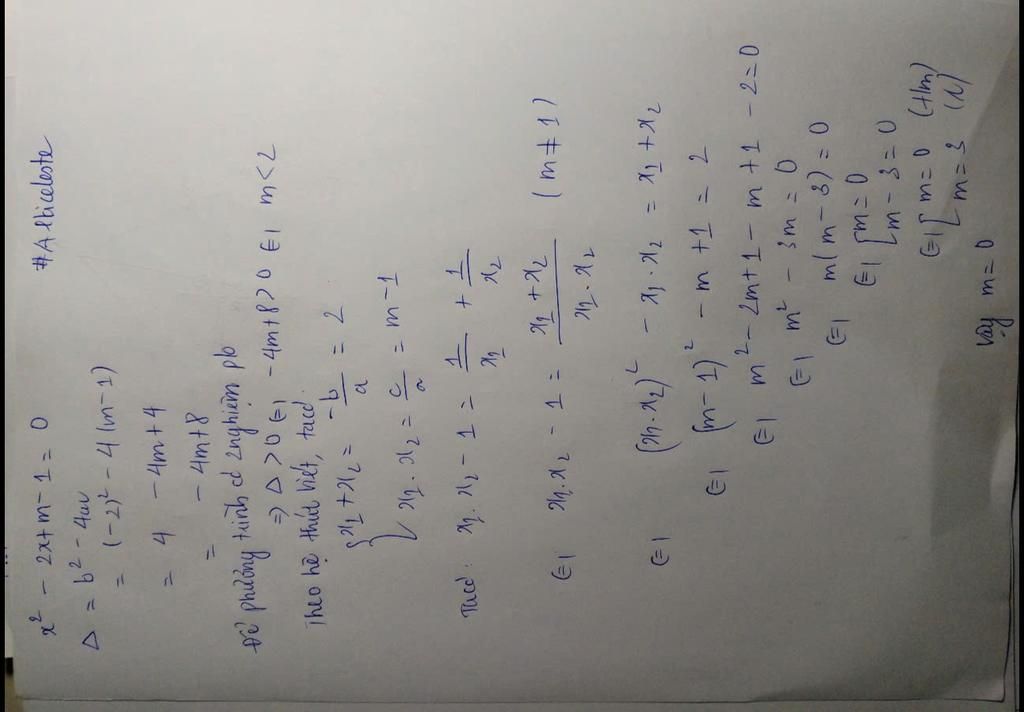 x² - 2x + m - 1 = 0 #Alticeleste
Δ = b² - 4ac
= (-2)² - 4(m-1)
= 4 - 4m + 4
= - 4m + 8
Để phương trình có 2 nghiệm pb
⇒ Δ > 0 ⇔ -4m + 8 > 0 ⇔ m < 2
Theo hệ thức Viét, ta có:
{ x₁ + x₂ = -b/a = 2
x₁ . x₂ = c/a = m - 1
Ta có: x₁ . x₂ - 1 = 1/x₁ + 1/x₂
⇔ x₁ . x₂ - 1 = (x₁ + x₂)/(x₁ . x₂) (m ≠ 1)
⇔ (x₁ . x₂)² - x₁ . x₂ = x₁ + x₂
⇔ (m - 1)² - m + 1 = 2
⇔ m² - 2m + 1 - m + 1 - 2 = 0
⇔ m² - 3m = 0
⇔ m(m - 3) = 0
⇔ [ m = 0
m - 3 = 0
⇔ [ m = 0 (tm)
m = 3 (l)
Vậy m = 0